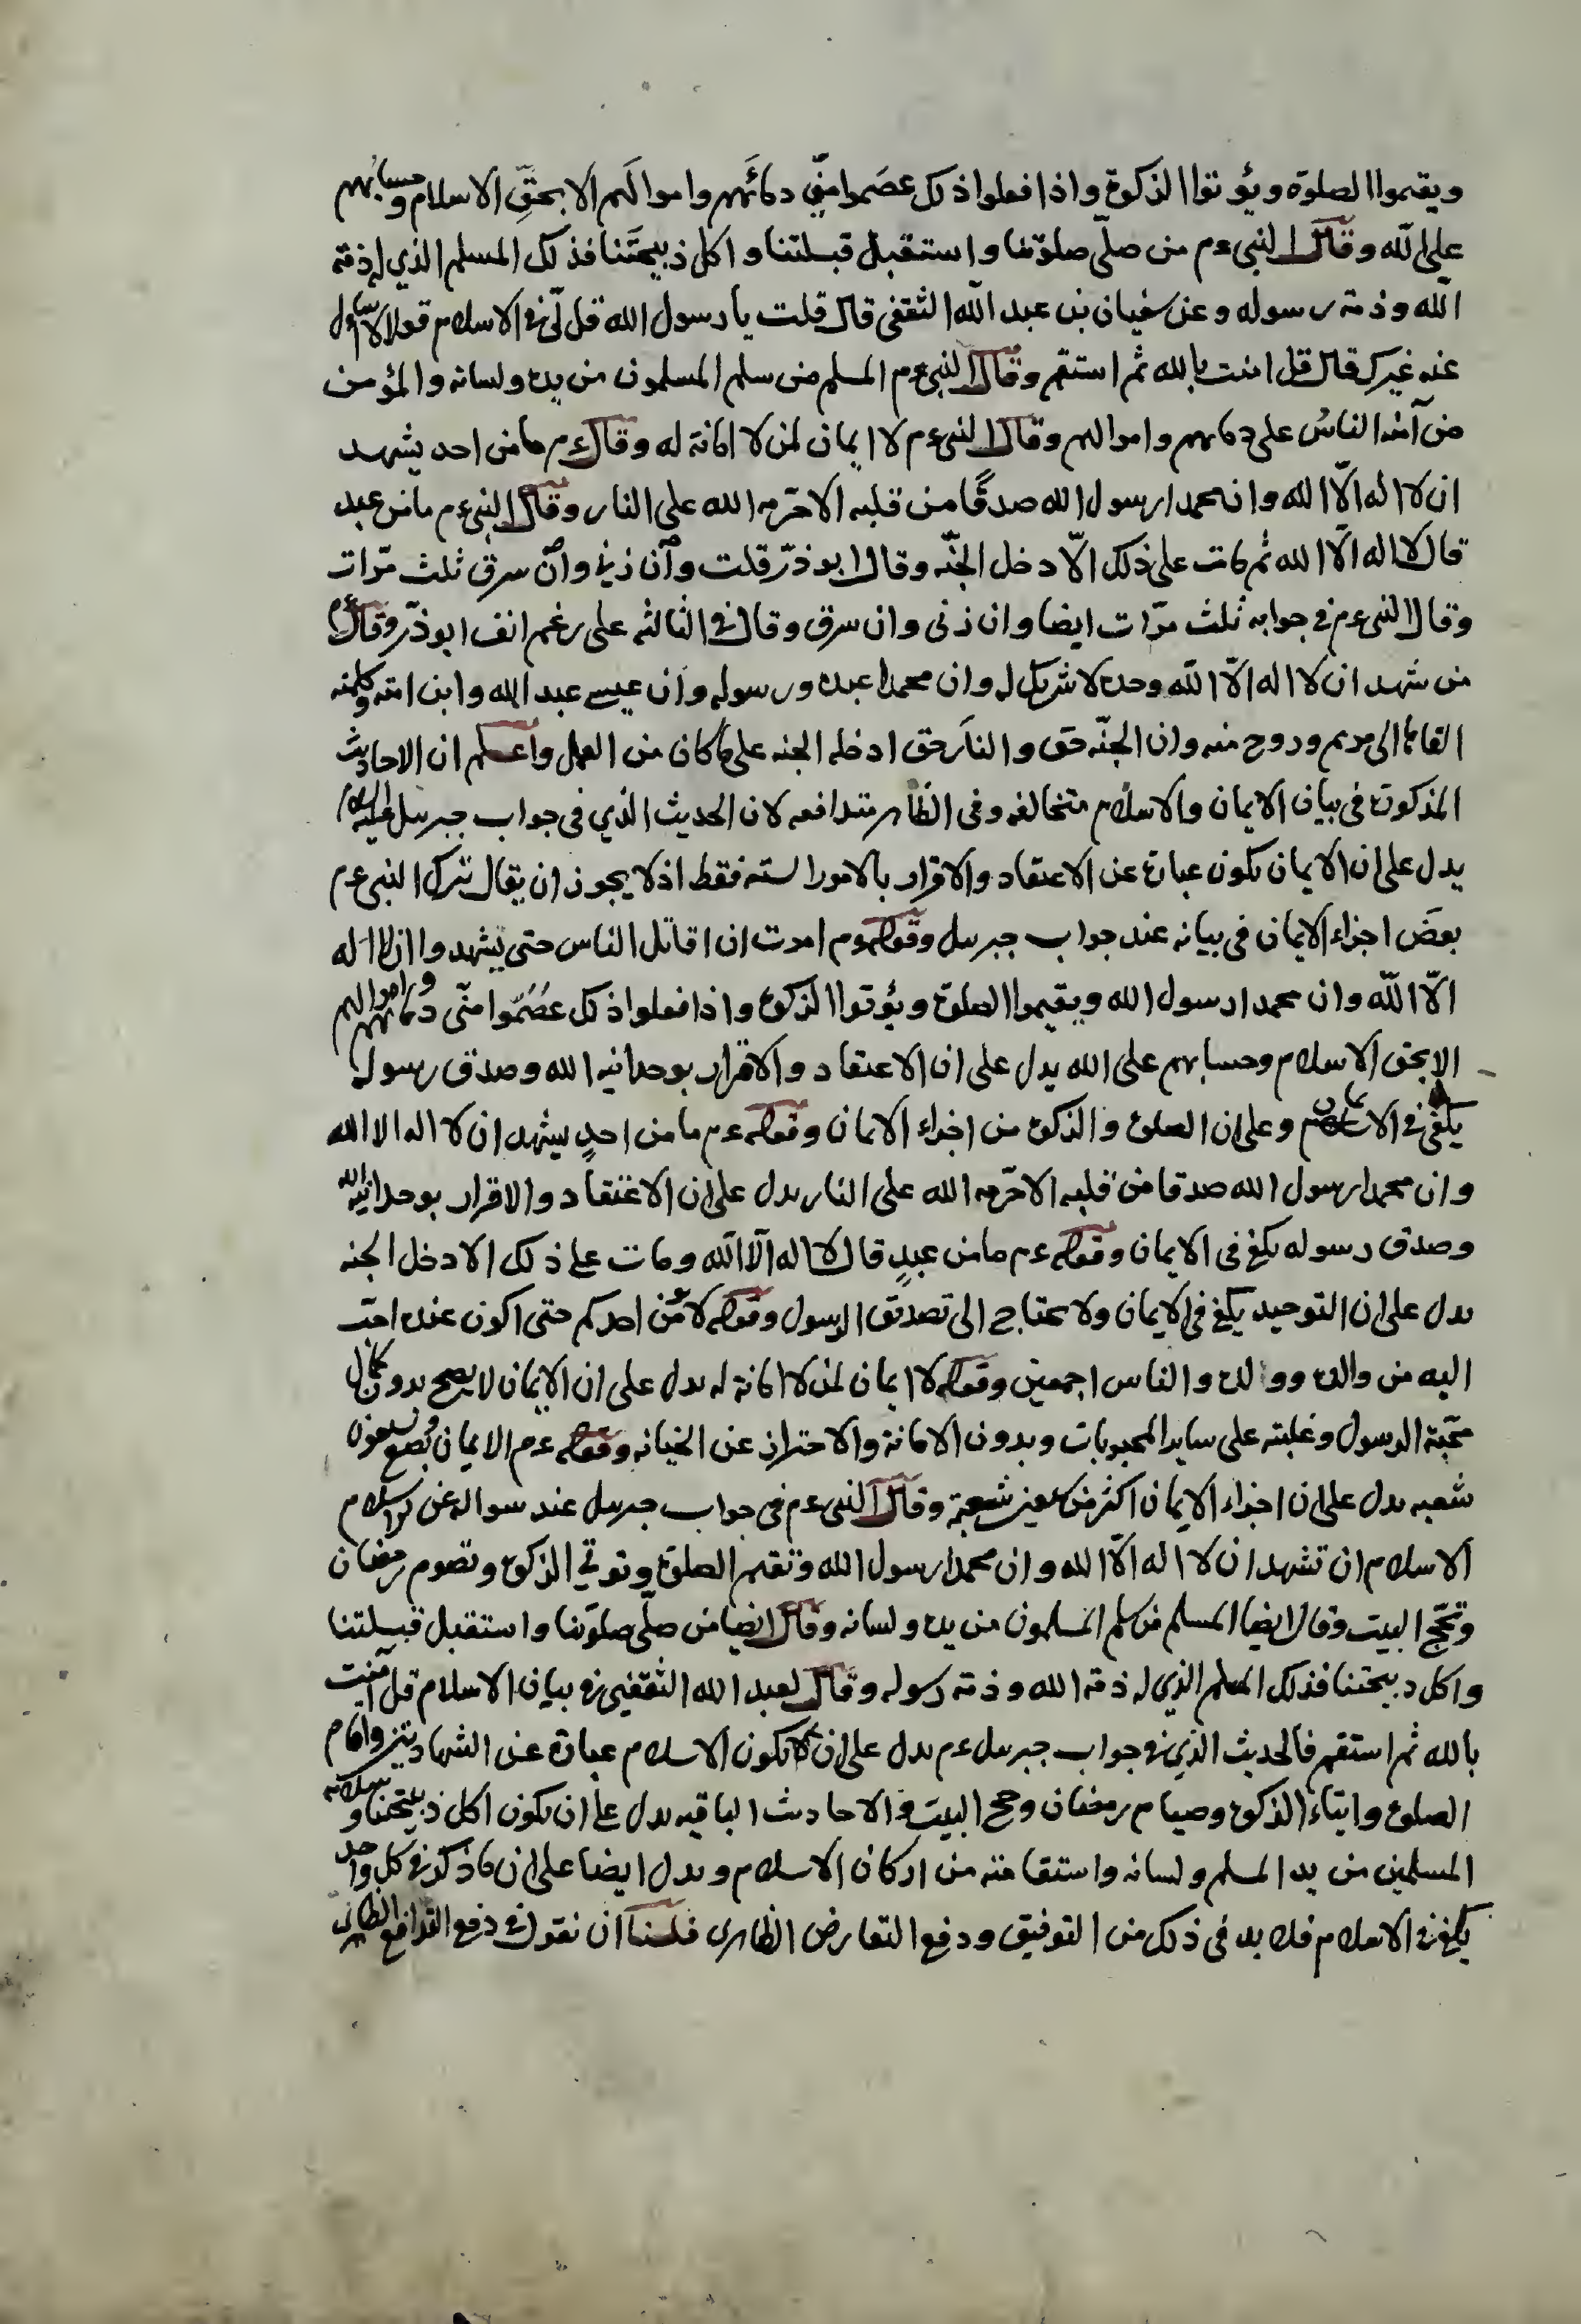 ويقيموا الصلوة ويؤتوا الزكوة واذا فعلوا ذلك عصَموا منّي دمائَهم واموالَهم الا بحقِّ الاسلام وحسابُهم
على الله وقال النبي ءم من صلّى صلوتنا واستقبل قبلتنا واكل ذبيحتَنا فذلك المسلم الذي له ذمة
الله وذمة رسوله وعن سفيان بن عبد الله الثقفي قال قلت يا رسول الله قل لّي في الاسلام قولا لا اسأل
عنه غيرك قال قل امنت بالله ثم استقم وقال النبي ءم المسلم من سلم المسلمون من يده ولسانه والمؤمن
من آمنه الناسُ على دمائهم واموالهم وقال النبي ءم لا ايمان لمن لا امانة له وقال ءم ما من احد يشهد
ان لا اله الّا الله وان محمدا رسول الله صدقًا من قلبه الا حرّمه الله على النار وقال النبي ءم ما من عبد
قال لا اله الّا الله ثم مات على ذلك الّا دخل الجنّه وقال ابو ذرّ قلت وآن زني وآن سرق ثلث مرّات
وقال النبي ءم في جوابه ثلث مرّات ايضا وان زنى وان سرق وقال في الثالثه على رغم انف ابو ذرّ وقال ءم
من شهد ان لا اله الّا الله وحده لا شريك له وان محمدا عبده ورسوله وان عيسى عبد الله وابن امته وكلمته
القاها الى مريم وروح منه وان الجنّه حق والنار حق ادخله الجنه على ما كان من العمل واعلم ان الاحاديث
المذكورة في بيان الايمان والاسلام متخالفه وفي الظاهر متدافعه لان الحديث الذي في جواب جبريل عليه السلام
يدل على ان الايمان يكون عبارة عن الاعتقاد والاقرار بالامور الستة فقط اذ لا يجوز ان يقال ترك النبي ءم
بعضَ اجزاء الايمان في بيانه عند جواب جبريل وقوله ءم امرت ان اقاتل الناس حتى يشهدوا ان لا اله
الّا الله وان محمدا رسول الله ويقيموا الصلوة ويؤتوا الزكوة واذا فعلوا ذلك عصُمّوا منّي دمائهم واموالهم
الا بحق الاسلام وحسابهم على الله يدل على ان الاعتقاد والاقرار بوحدانية الله وصدق رسوله
يكفي في الايمان وعلى ان الصلوة والزكوة من اجزاء الايمان وقوله ءم ما من احدٍ يشهد ان لا اله الا الله
وان محمدا رسول الله صدقا من قلبه الا حرّمه الله على النار يدل على ان الاعتقاد والاقرار بوحدانية الله
وصدق رسوله يكفي في الايمان وقوله ءم ما من عبدٍ قال لا اله الّا الله ومات على ذلك الا دخل الجنه
يدل على ان التوحيد يكفي في الايمان ولا يحتاج الى تصديق الرسول وقوله لا يؤمن احدكم حتى اكون عنده احبّ
اليه من والده وولده والناس اجمعين وقوله لا ايمان لمن لا امانة له يدل على ان الايمان لا يصح بدون كمال
محبّة الرسول وغلبته على ساير المحبوبات وبدون الامانة والاحتراز عن الخيانه وقوله ءم الايمان بضع وسبعون
شعبه يدل على ان اجزاء الايمان اكثر من سبعين شعبة وقال النبي ءم في جواب جبريل عند سواله عن الاسلام
الاسلام ان تشهد ان لا اله الّا الله وان محمدا رسول الله وتقيم الصلوة وتوتي الزكوة وتصوم رمضان
وتحجّ البيت وقال ايضا المسلم من سلم المسلمون من يده ولسانه وقال ايضا من صلّى صلوتنا واستقبل قبلتنا
واكل ذبيحتنا فذلك المسلم الذي له ذمة الله وذمة رسوله وقال لعبد الله الثقفي في بيان الاسلام قل آمنت
بالله ثم استقم فالحديث الذي في جواب جبريل ءم يدل على ان يكون الاسلام عبارة عن الشهادتين واقام
الصلوة وايتاء الزكوة وصيام رمضان وحج البيت والاحاديث الباقيه يدل على ان يكون اكل ذبيحتنا وسلامة
المسلمين من يد المسلم ولسانه واستقامته من اركان الاسلام ويدل ايضا على ان ما ذكر في كل واحد
يكفي في الاسلام فلا بد في ذلك من التوفيق ودفع التعارض الظاهري فلنا ان نقول في دفع التدافع الظاهري